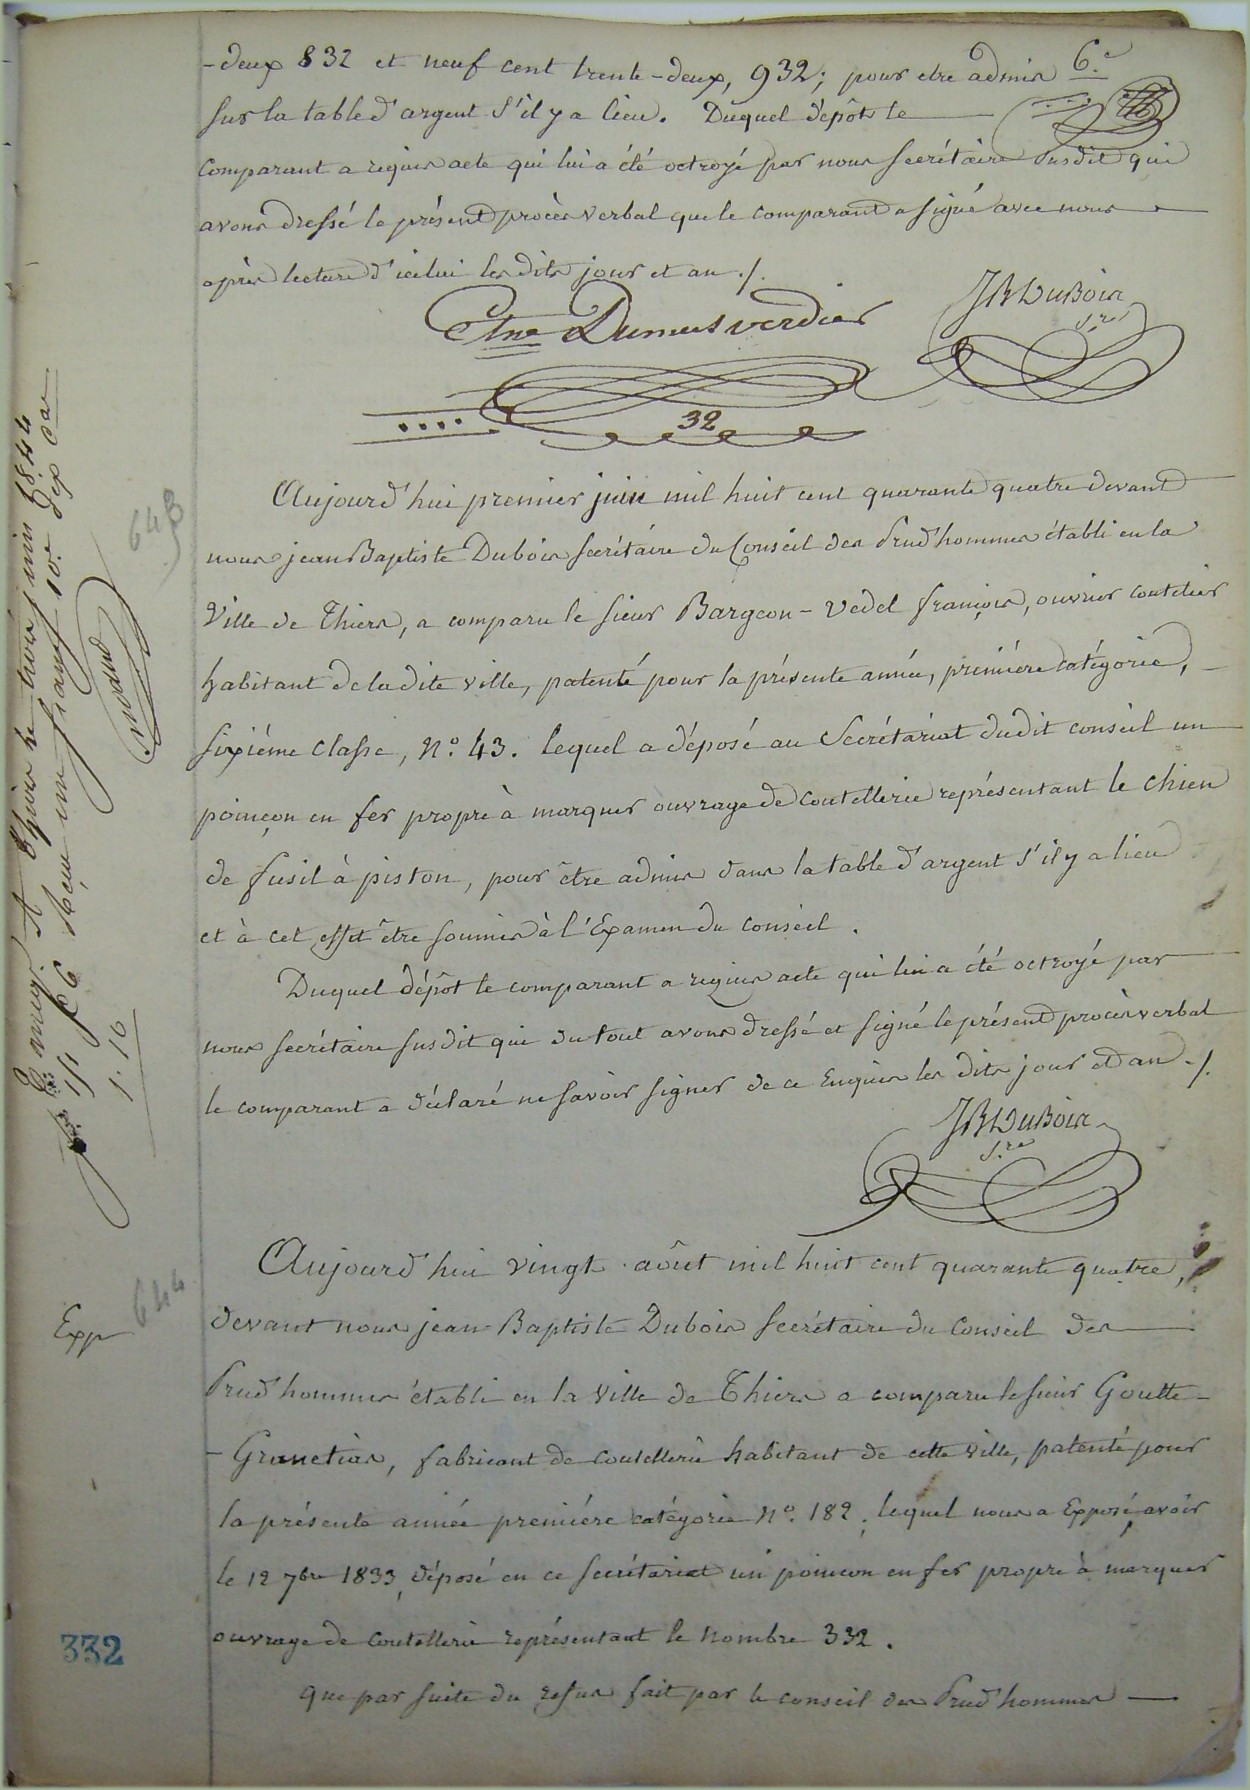 -deux 832 et neuf cent trente-deux, 932; pour etre admis 6.e
sur la table d'argent s'il y a lieu. Duquel dépôt le
comparant a requis acte qui lui a été octroyé par nous secrétaire susdit qui
avons dressé le présent procès verbal que le comparant a signé avec nous
après lecture d'icelui les dits jour et an ./.
JB Dubois
s.re
Etne Dumas verdier
32
Aujourd'hui premier juin mil huit cent quarante quatre devant
nous jean Baptiste Dubois secrétaire du Conseil des Prud'hommes établi en la
Ville de Thiers, a comparu le sieur Bargeon-Vedel françois, ouvrier coutelier
habitant de la dite ville, patenté pour la présente année, première catégorie,
sixiéme classe, N.o 43. lequel a déposé au Secrétariat dudit conseil un
poinçon en fer propre à marquer ouvrage de Coutellerie représentant le chien
de fusil à piston, pour être admis dans la table d'argent s'il y a lieu
et à cet effet être soumis à l'Examen du conseil.
Duquel dépôt le comparant a requis acte qui lui a été octroyé par
nous secrétaire susdit qui du tout avons dressé et signé le présent procès verbal
le comparant a déclaré ne savoir signer de ce Enquis les dits jour et an ./.
JB Dubois
s.re
643
Enreg. A Thiers le trois juin 1844
Reçu un franc 10.es dix c.es
1.10
644
Exp
Aujourd'hui vingt août mil huit cent quarante quatre,
devant nous jean-Baptiste Dubois secrétaire du Conseil des
Prud'hommes établi en la ville de Thiers a comparu le sieur Goutte-
-Granetias, fabricant de coutellerie habitant de cette ville, patenté pour
la présente année première catégorie N.o 182, lequel nous a Exposé avoir
le 12 7bre 1833, déposé en ce secrétariat un poincon en fer propre à marquer
ouvrage de coutellerie représentant le nombre 332.
332
que par suite du refus fait par le conseil des Prud'hommes